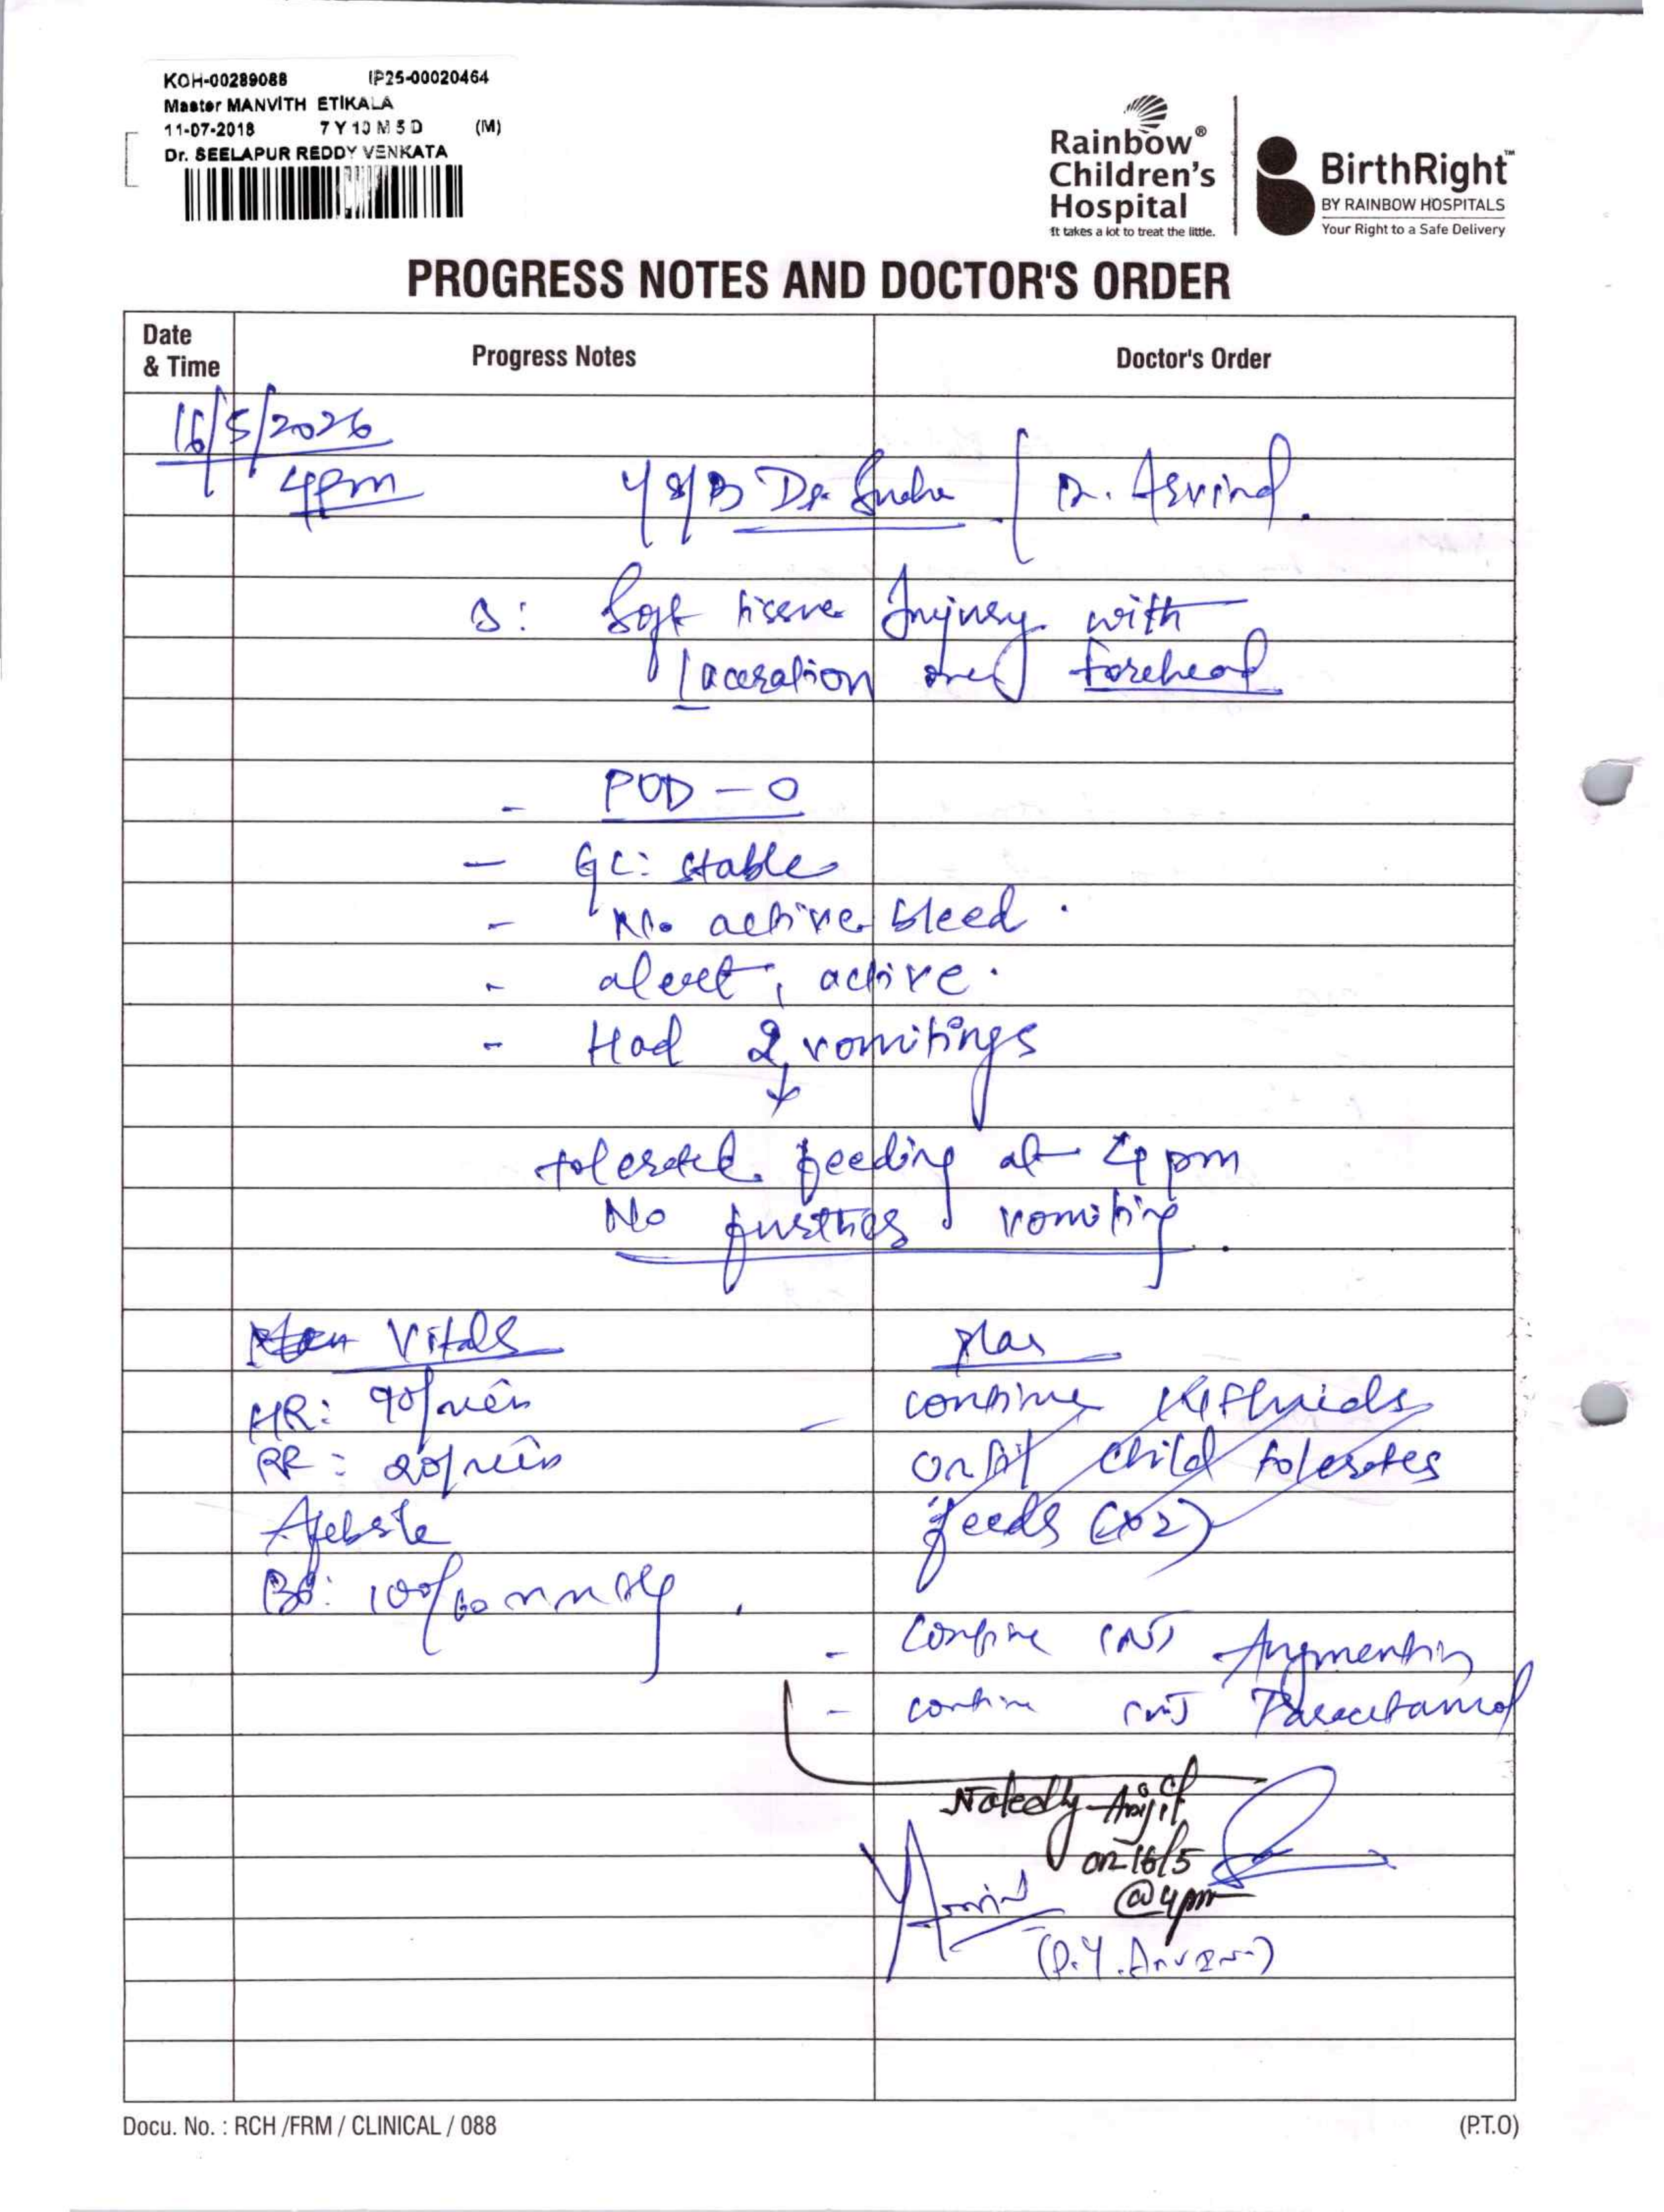 KOH-00289088 IP25-00020464
Master MANVITH ETIKALA
11-07-2018 7 Y 10 M 5 D (M)
Dr. SEELAPUR REDDY VENKATA
Rainbow®
Children's
Hospital
It takes a lot to treat the little.
BirthRight™
BY RAINBOW HOSPITALS
Your Right to a Safe Delivery
PROGRESS NOTES AND DOCTOR'S ORDER
Date
& Time
Progress Notes
Doctor's Order
16/5/2026
4pm
S/B Dr. / Dr. Asvind.
Soft tissue Injury with
laceration over forehead
- POD - 0
- GC: stable
- No active bleed.
- alert, active.
- Had 2 vomitings
↓
tolerated feeding at 4 pm
No further vomiting.
Vitals
HR: 90/min
RR: 20/min
Afebrile
BP: 100/60 mmHg
Plan
- continue fluids
child tolerates
feeds (x2)
- Continue INJ Augmentin
- continue INJ Paracetamol
Noted by
on 16/5
@4pm
Docu. No. : RCH /FRM / CLINICAL / 088
(P.T.O)